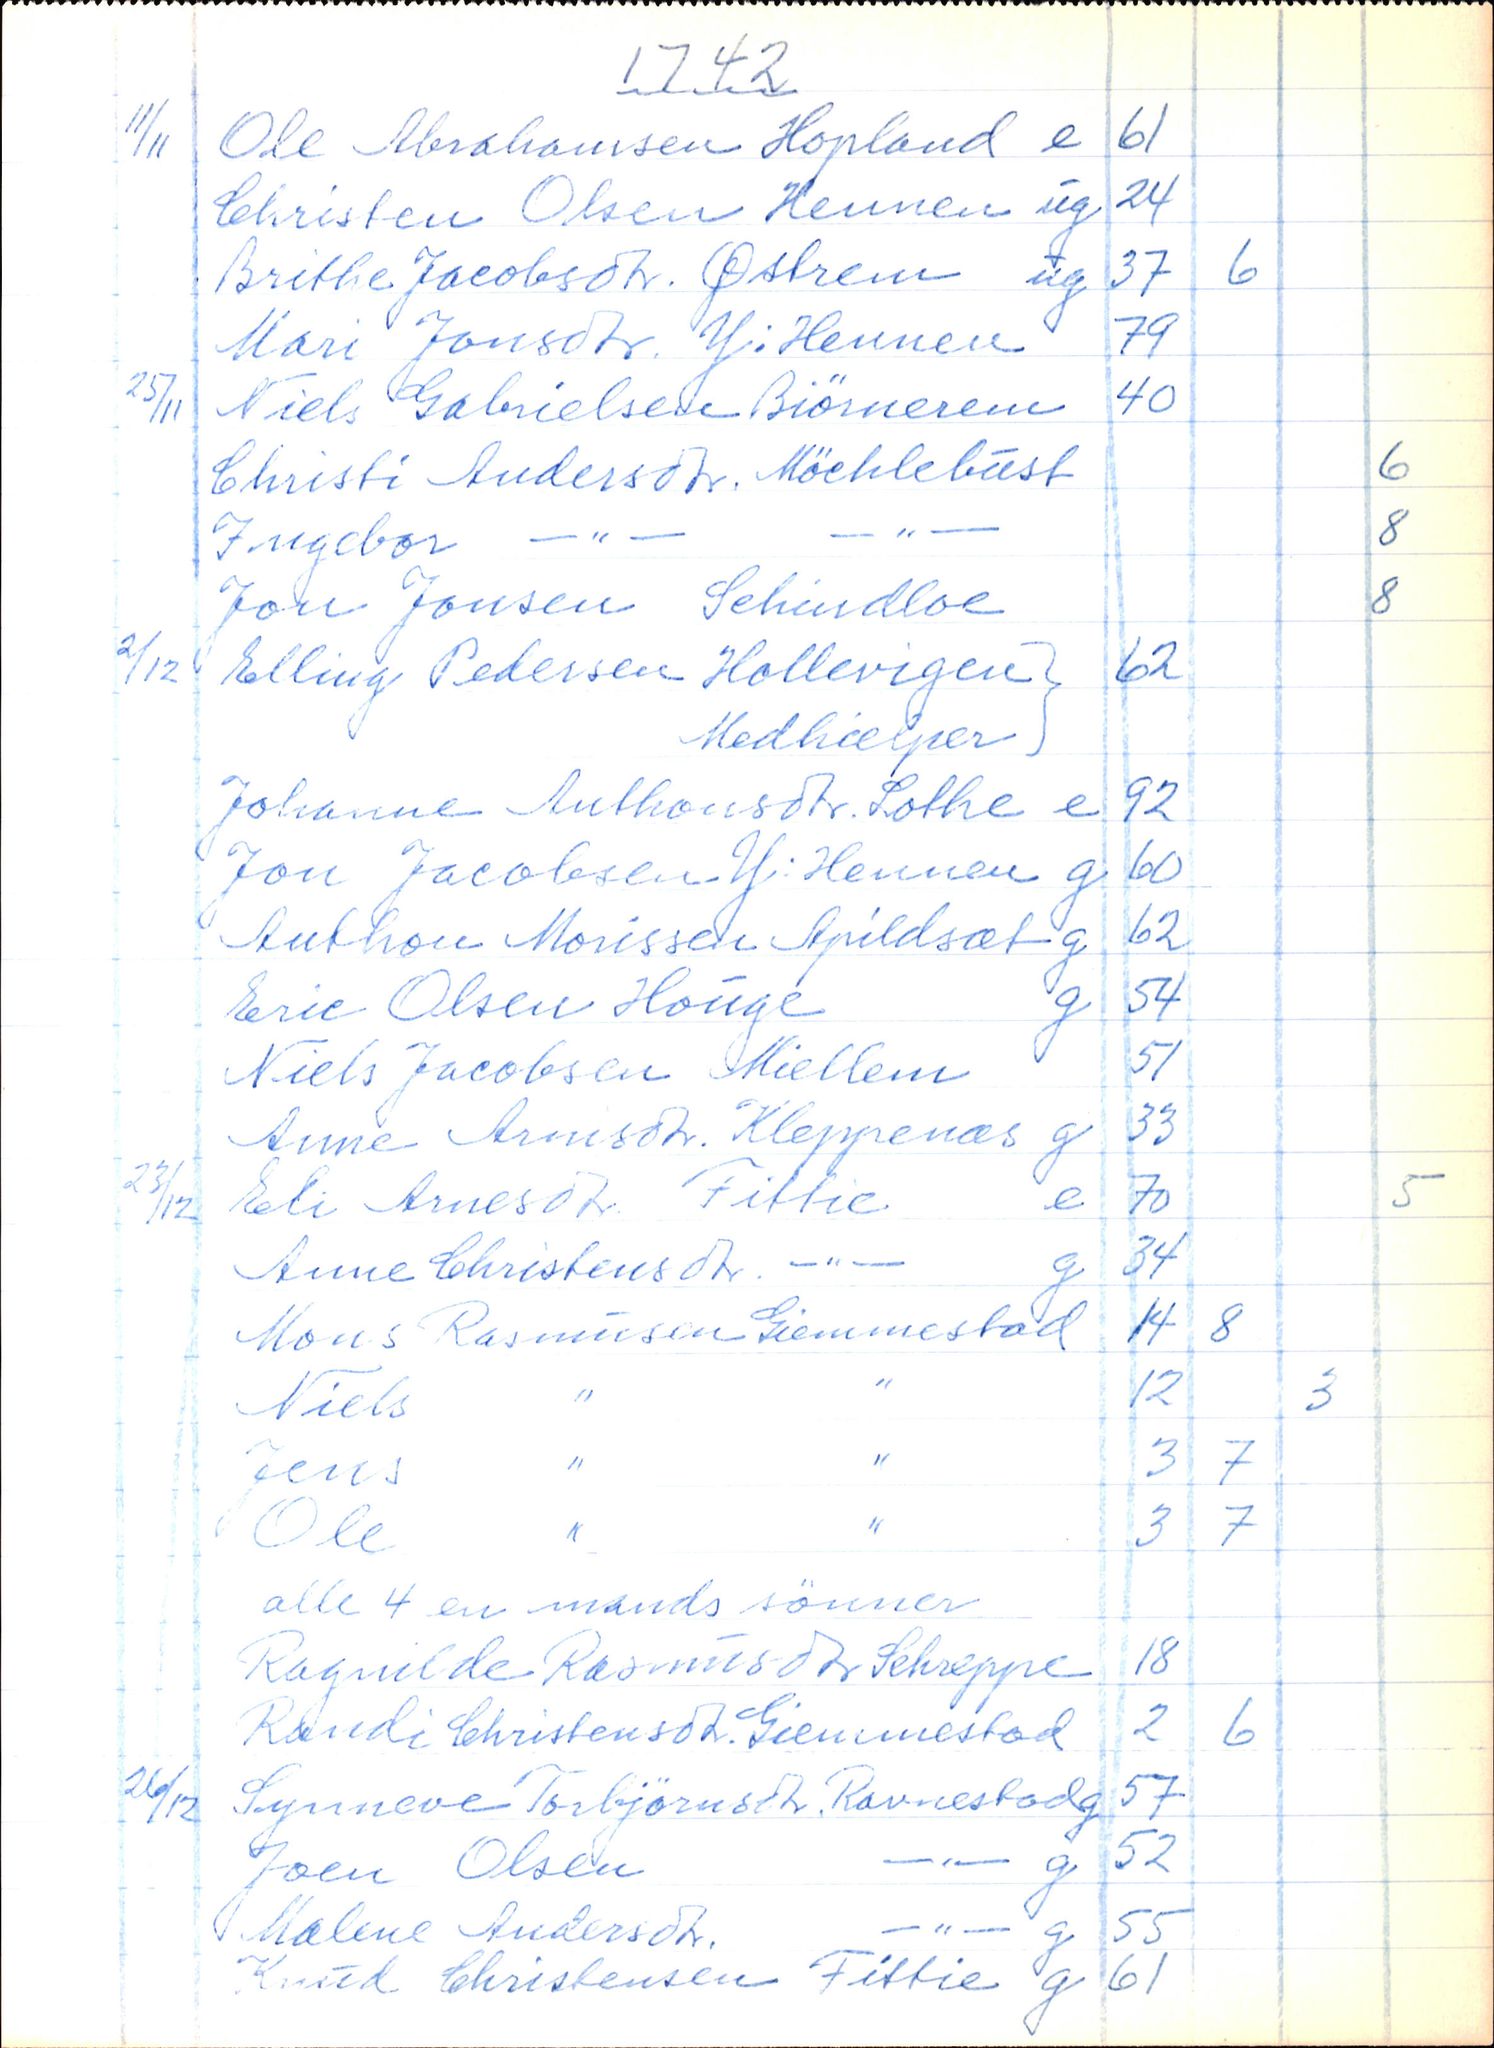 1742
11/11 Ole Abrahamsen Hopland e 61
Christen Olsen Hennen ug 24
Brithe Jacobsdtr. Østrem ug 37 6
Mari Jonsdtr. Y: Hennen 79
25/11 Niels Gabrielsen Biörnerem 40
Christi Andersdtr. Möchlebust 6
Ingebor —"— —"— 8
Jon Jonsen Schindloe 8
2/12 Elling Pedersen Hollevigen } 62
Medhielper }
Johanne Anthonsdtr. Lothe e 92
Jon Jacobsen Y: Hennen g 60
Anthon Morissen Apildsæt g 62
Eric Olsen Houge g 54
Niels Jacobsen Miellem 51
Anne Arnisdtr. Kleppenæs g 33
23/12 Eli Arnesdtr. Fittie e 70 5
Anne Christensdtr. —"— g 34
Mons Rasmusen Giemmestad 14 8
Niels " " 12 3
Jens " " 3 7
Ole " " 3 7
alle 4 en mands sönner
Ragnilde Rasmusdtr Schreppe 18
Randi Christensdtr. Giemmestad 2 6
26/12 Synneve Torbjörnsdtr. Ravnestad g 57
Joen Olsen —"— g 52
Malene Andersdtr. —"— g 55
Knud Christensen Fittie g 61